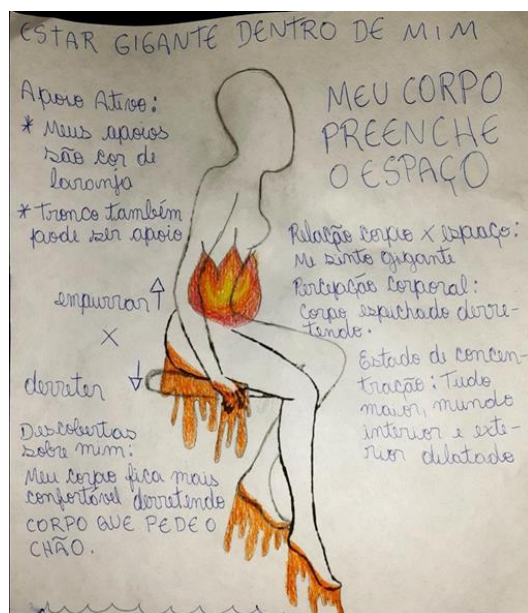 ESTAR GIGANTE DENTRO DE MIM
Apoio Ativo:
* Meus apoios
são cor de
laranja
* Tronco também
pode ser apoio
empurrar ↑
X
derreter ↓
Descobertas
sobre mim:
Meu corpo fica mais
confortável derretendo
CORPO QUE PEDE O
CHÃO.
MEU CORPO
PREENCHE
O ESPAÇO
Relação corpo X espaço:
Me sinto gigante
Percepção corporal:
Corpo espichado derre-
tendo.
Estado de concen-
tração: Tudo
maior, mundo
interior e exte-
rior dilatado